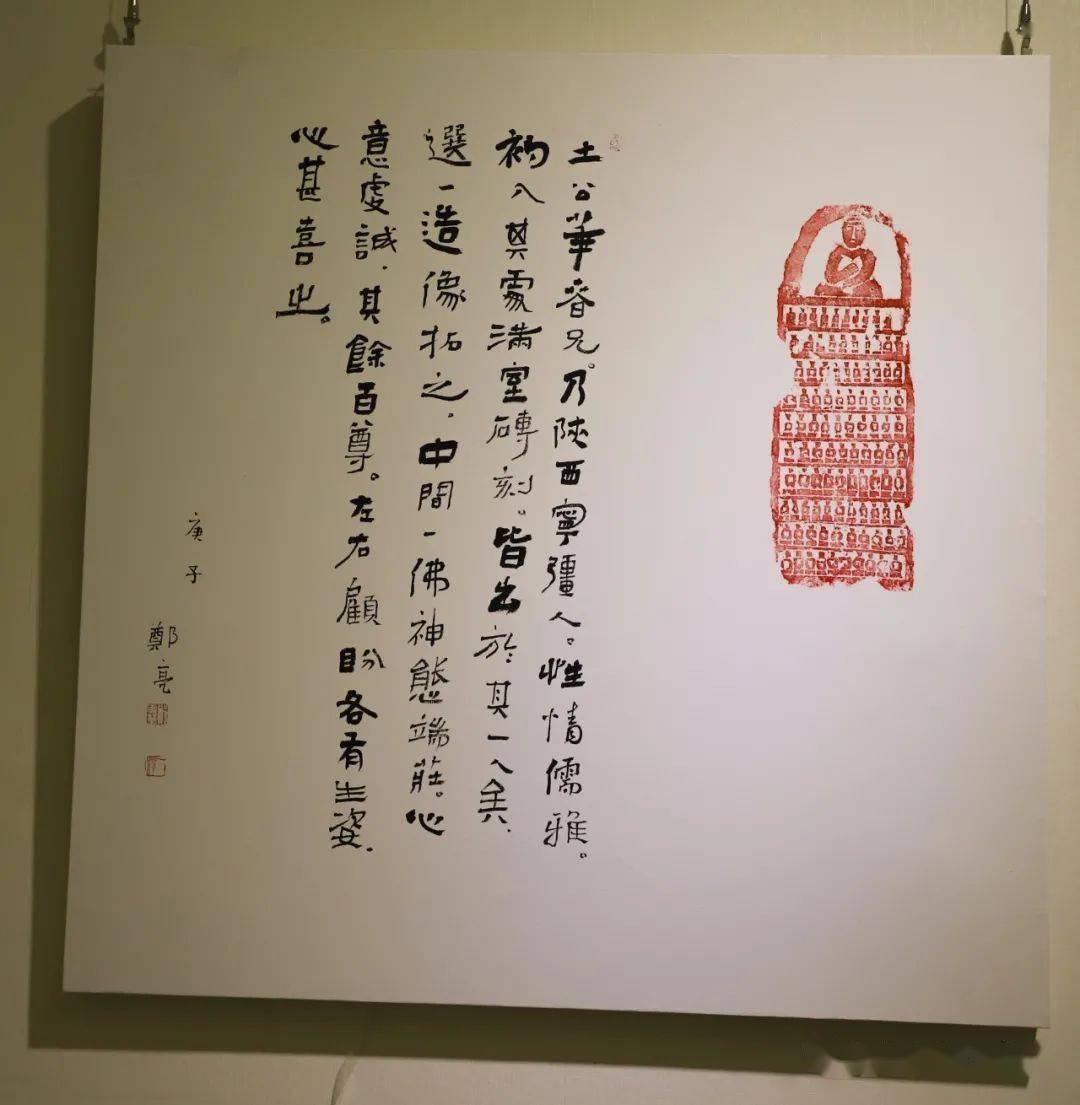 土公華春兄。乃陝西寧彊人。性情儒雅。
初入其處滿室磚刻。皆出於其一人矣、
選一造像拓之、中間一佛神態端莊。心
意虔誠、其餘百尊。左右顧盼各有生姿、
心甚喜之。
庚子
鄭亮